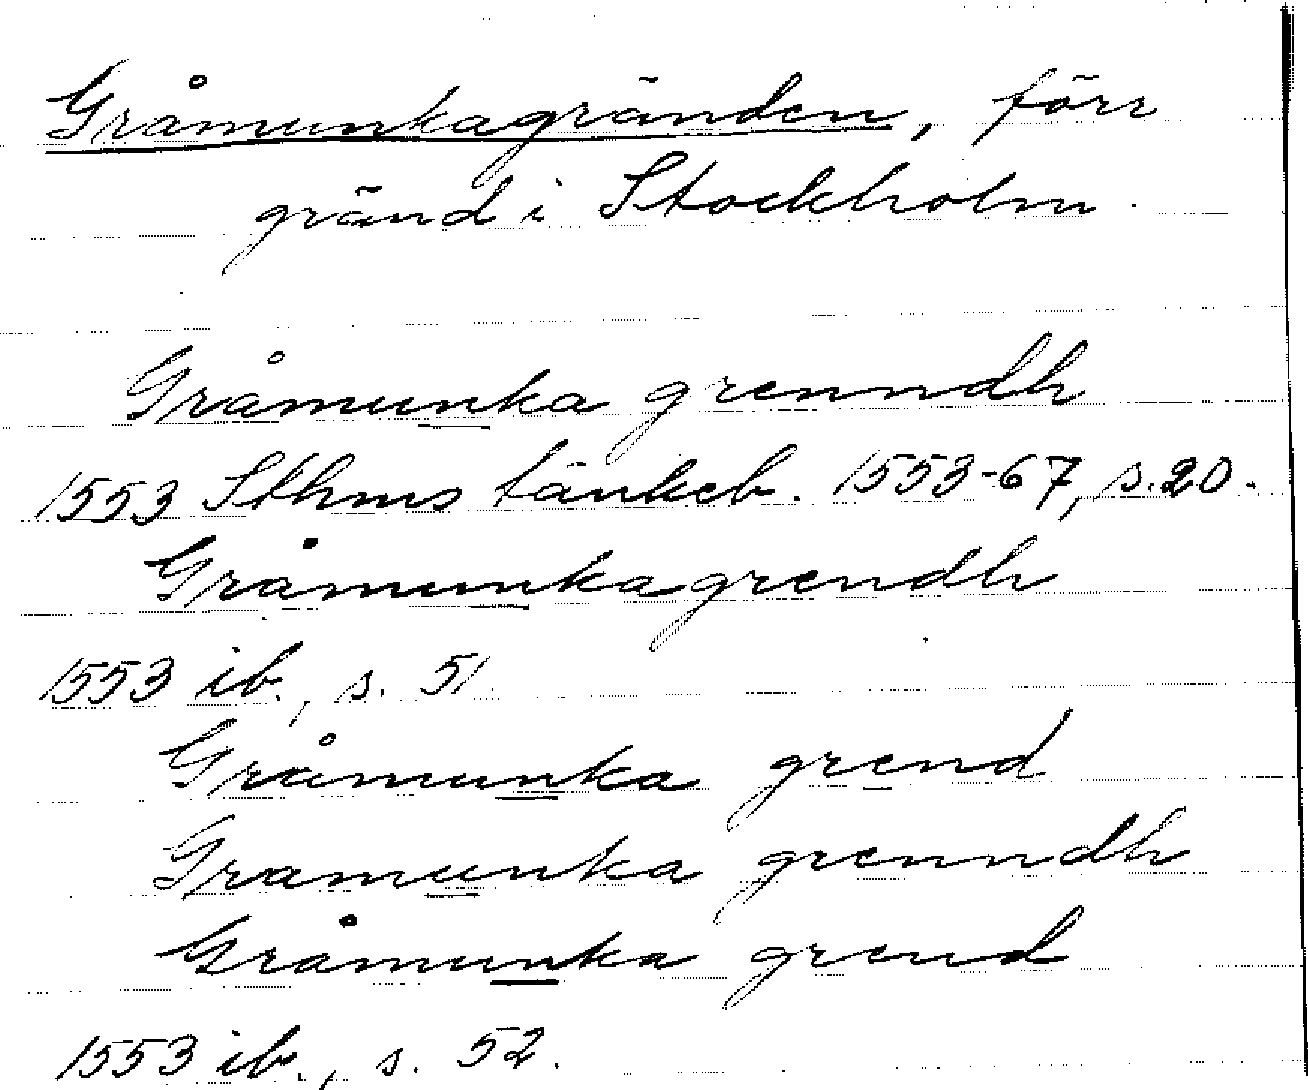 Gråmunkagränden, förr
gränd i Stockholm.
Gråmunka grenndh
1553 Sthms tänkeb. 1553-67, s. 20.
Gråmunkagrendh
1553 ib., s. 51
Gråmunka grend
Gramunka grenndh
Gråmunka grend
1553 ib., s. 52.